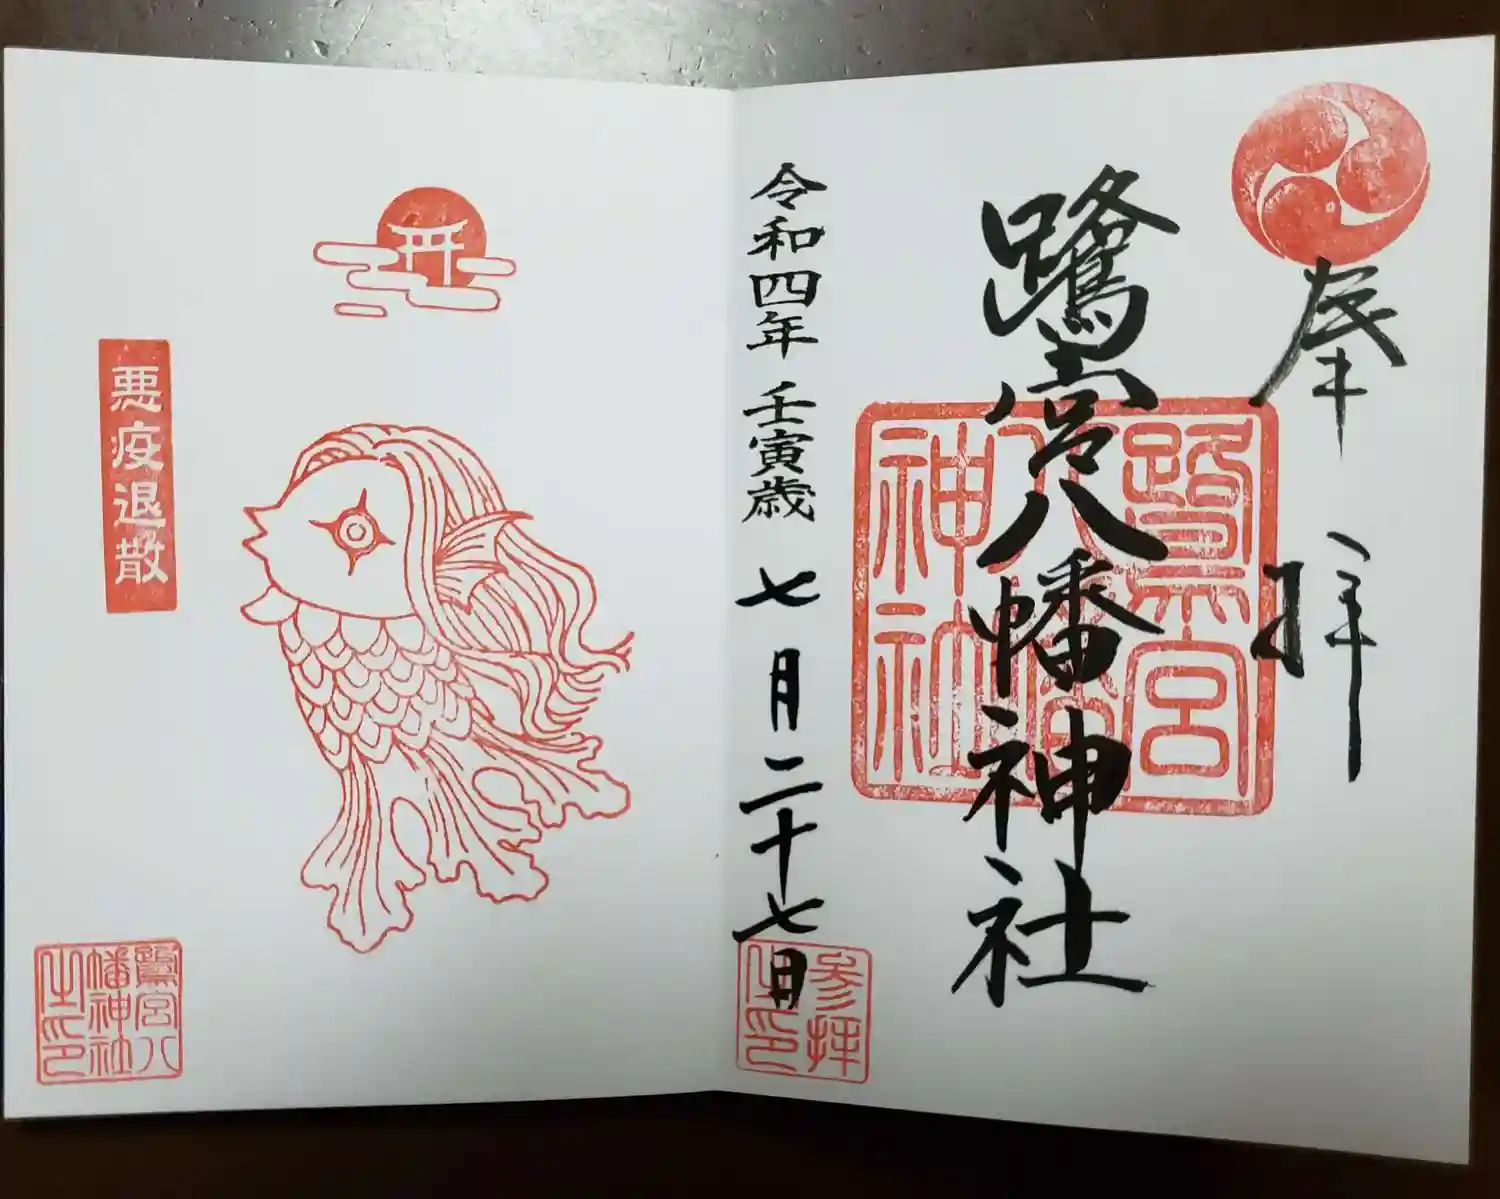 奉拝
鷺宮八幡神社
鷺宮
八幡
神社
令和四年 壬寅歳 七月二十七日
参拝
之印
悪疫退散
鷺宮八
幡神社
之印